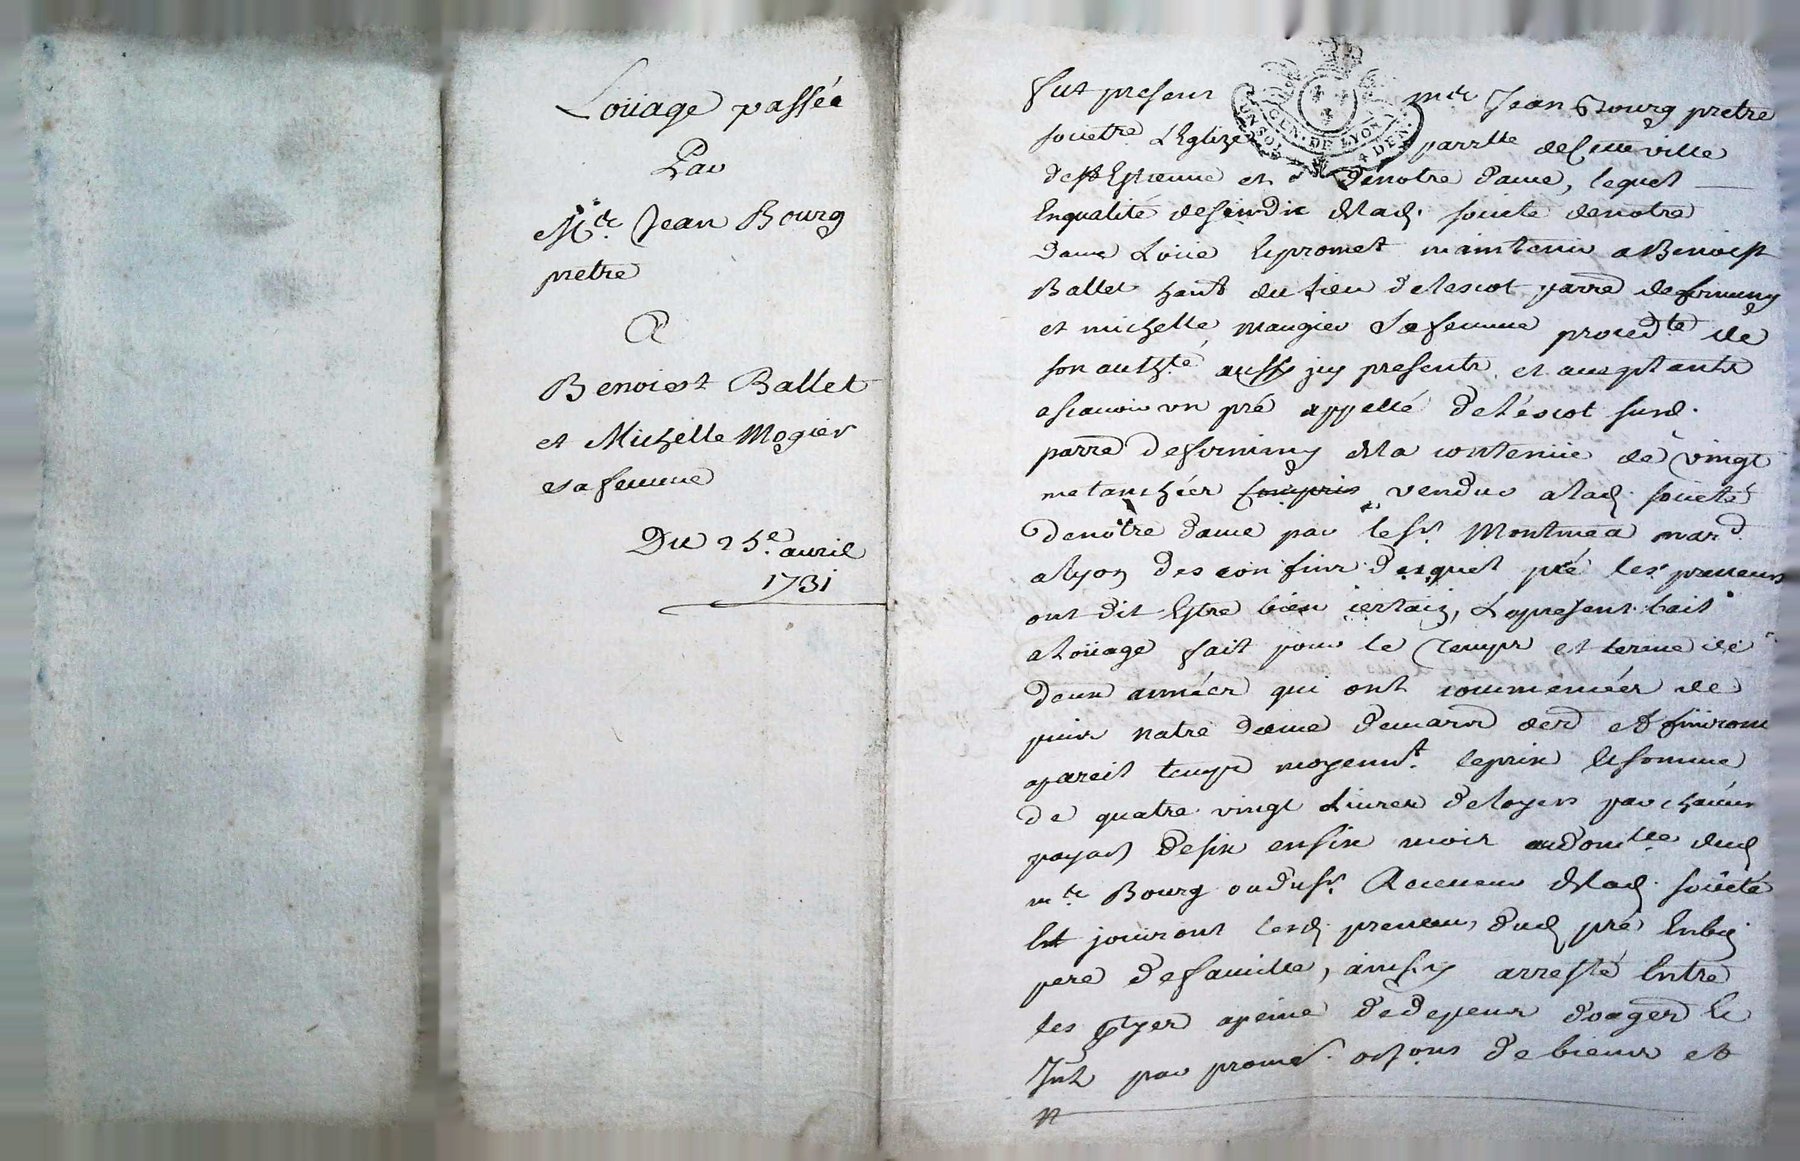 Loüage passée
Par
Mre. Jean Bourg
pretre
A
Benoist Ballet
et Michelle Mogier
sa femme
Du 25e. avril
1731
fut present mre Jean Bourg pretre
societre. d'Eglize parrlle de cette ville
de st Estienne et de notre dame, lequel
En qualité de sindic de lad. societé de notre
dame Loüe et promet maintenir a Benoist
Ballet hant du lieu de lescot parre de firminy
et michelle maugier sa femme proced.te de
son authté. aussy icy presents et acceptants
ascavoir un pré appellé de l'escot sur d.
parre de firminy de la contenüe de vingt
metanchées vendue a lad. societé
de nôtre dame par le sr. Montmea mard.
a lyon des confins duquel pré les preneurs
ont dit Estre bien certains, Le present bail
a loüage fait pour le temps et terme de
deux années qui ont commencées de
puis notre dame de mars der et finiront
a pareil temps moyennt. le prix et somme
de quatre vingt Livres de loyers par chacun
payab de six en six mois au domlle dud
mre Bourg ou du sr. Receveur de lad. societé
Et joüiront lesd. preneurs dud pré En bon
pere de famille, ainsy arresté Entre
les ptyes a peine de depens domages et
Int par promes. oblons de biens et